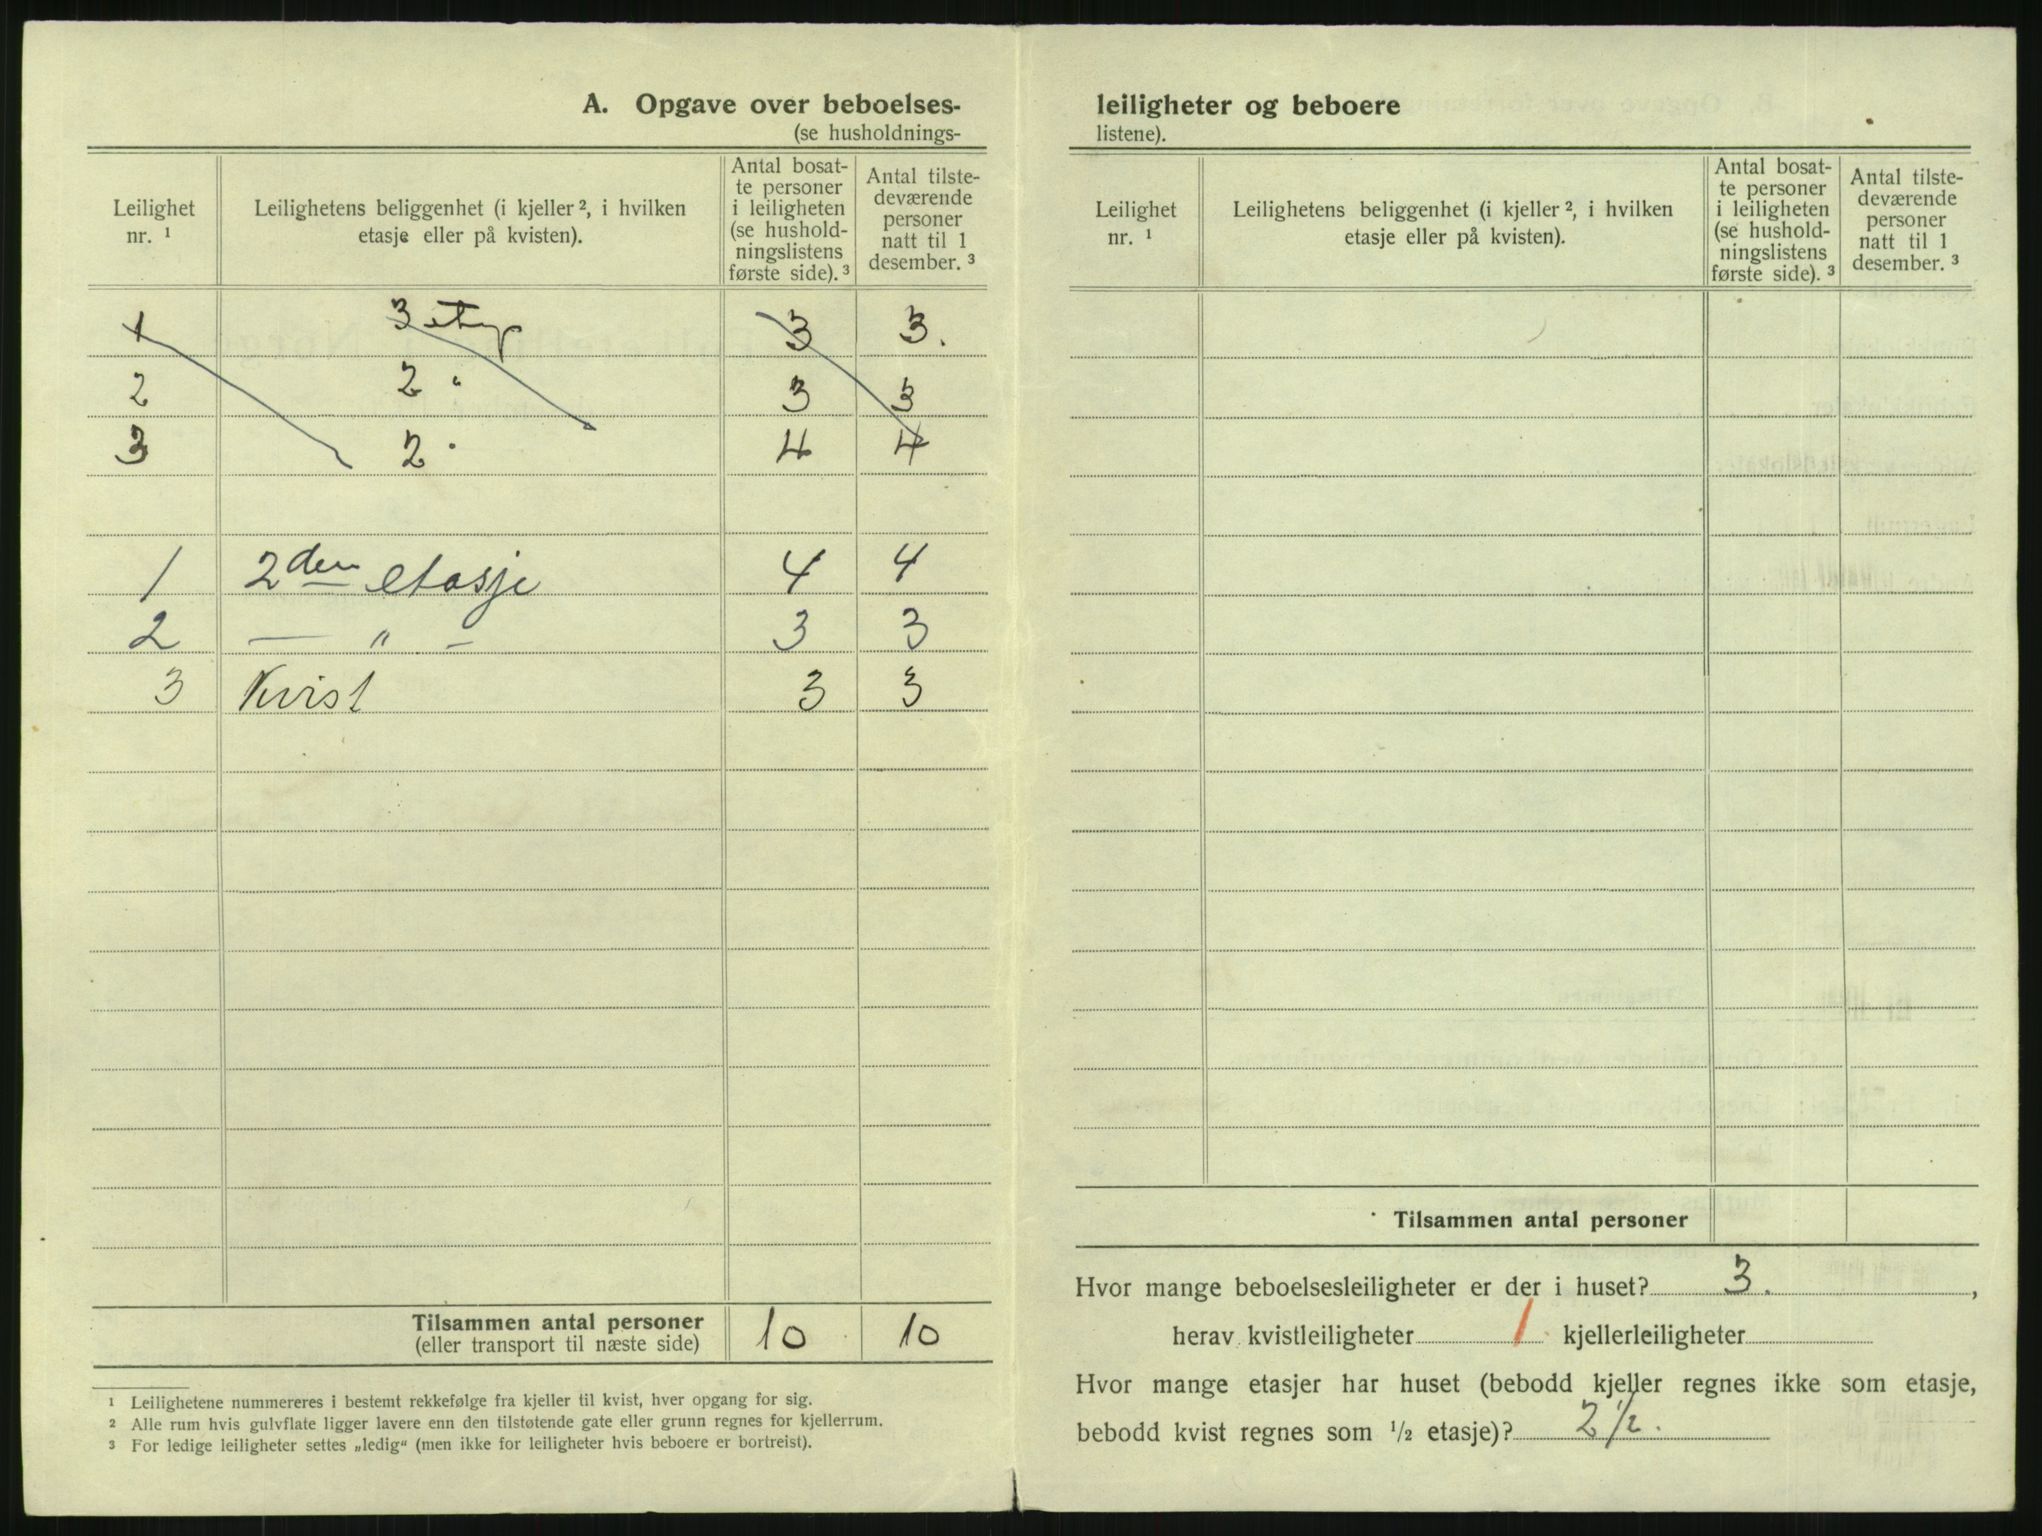 A. Opgave over beboelses-
(se husholdnings-
Leilighet nr. 1
Leilighetens beliggenhet (i kjeller 2, i hvilken etasje eller på kvisten).
Antal bosatte personer i leiligheten (se husholdningslistens første side). 3
Antal tilstedeværende personer natt til 1 desember. 3
1 3 3 3.
2 2 " 3 3
3 2 " 4 4
1 2den etasje 4 4
2 — " — 3 3
3 Kvist 3 3
Tilsammen antal personer 10 10
(eller transport til næste side)
1 Leilighetene nummereres i bestemt rekkefølge fra kjeller til kvist, hver opgang for sig.
2 Alle rum hvis gulvflate ligger lavere enn den tilstøtende gate eller grunn regnes for kjellerrum.
3 For ledige leiligheter settes „ledig“ (men ikke for leiligheter hvis beboere er bortreist).
leiligheter og beboere
listene).
Leilighet nr. 1
Leilighetens beliggenhet (i kjeller 2, i hvilken etasje eller på kvisten).
Antal bosatte personer i leiligheten (se husholdningslistens første side). 3
Antal tilstedeværende personer natt til 1 desember. 3
Tilsammen antal personer
Hvor mange beboelsesleiligheter er der i huset? 3. ,
herav kvistleiligheter 1 kjellerleiligheter
Hvor mange etasjer har huset (bebodd kjeller regnes ikke som etasje,
bebodd kvist regnes som 1/2 etasje)? 2 1/2.